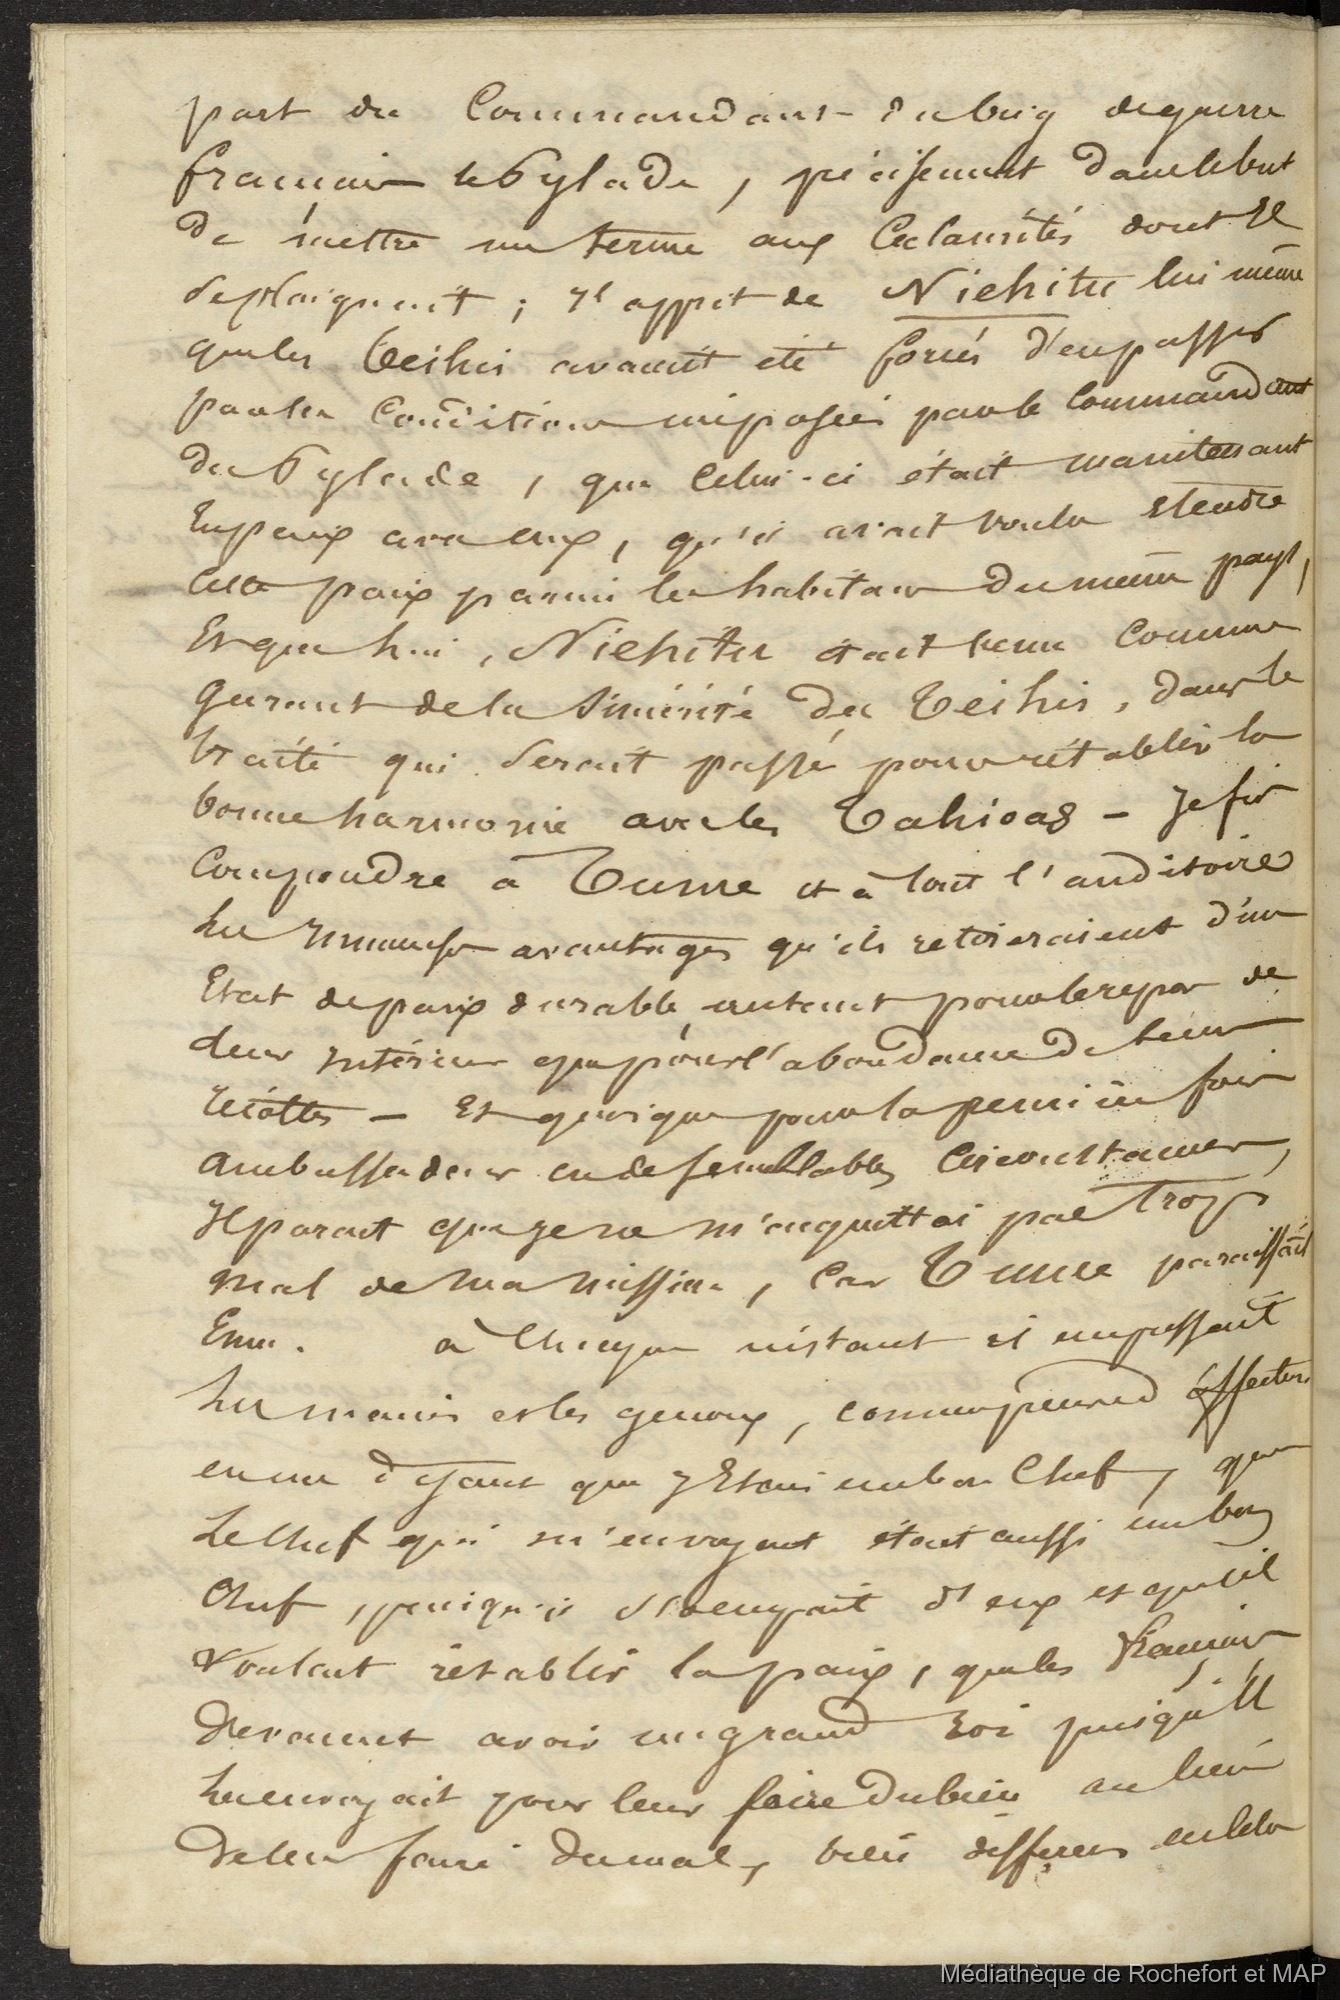 part du Commandant du brig de guerre
français le Pylade, précisément dans le but
de mettre un terme aux Calamités dont Il
se plaignait ; Il apprit de Niehitu lui même
que les Teihis avaient été forcés d'en passer
par les Conditions imposées par le Commandant
du Pylade, que Celui-ci était maintenant
En paix avec eux, qu'il avait voulu Etendre
Cette paix parmi les habitans du même pays,
Et que lui, Niehitu était venu Comme
Garant de la Sincérité des Teihis, dans le
traité qui serait passé pour rétablir la
bonne harmonie avec les Tahioas - Je fis
Comprendre à Tume et à tout l'auditoire
Les Immenses avantages qu'ils retireraient d'un
Etat de paix durable autant pour le repos de
leur Intérieur que pour l'abondance de leurs
Récoltes - Et quoique pour la première fois
ambassadeur en de semblables Circonstances,
Il parait que je ne m'acquittai pas trop
mal de ma mission, Car Tume paraissait
Emu. à Chaque instant il me passait
Les mains et les genoux, comme pour
en me disant que J'Etais un bon Chef, que
Le Chef qui m'envoyait était aussi un bon
Chef, puisqu'il s'occupait d'eux et qu'il
voulait rétablir la paix, que les français
devaient avoir un grand Roi puisqu'Il
Les envoyait pour leur faire du bien au lieu
de leur faire du mal, bien différens en cela
Médiathèque de Rochefort et MAP